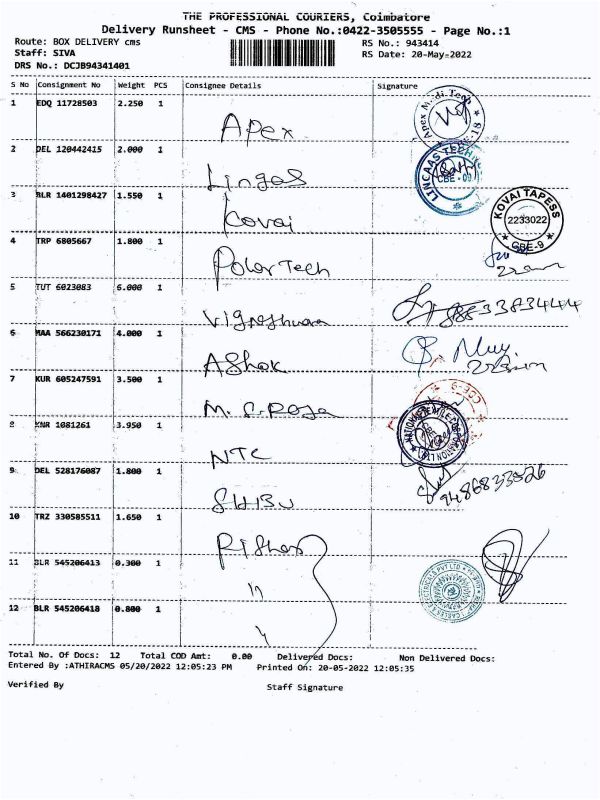 THE PROFESSIONAL COURIERS, Coimbatore
Delivery Runsheet - CMS - Phone No.:0422-3505555 - Page No.:1
Route: BOX DELIVERY cms
RS No.: 943414
Staff: SIVA
RS Date: 20-May-2022
DRS No.: DCJB94341401
S No Consignment No Weight PCS Consignee Details Signature
1 EDQ 11728503 2.250 1 Apex
2 DEL 120442415 2.000 1 Lingas
LINCAAS TECH
CBE - 09
3 BLR 1401298427 1.550 1 Kovai
KOVAI TAPESS
2233022
CBE-9
4 TRP 6805667 1.800 1 Polar Tech
5 TUT 6023083 6.000 1
6 MAA 566230171 4.000 1 Ashok
7 KUR 605247591 3.500 1
8 KNR 1081261 3.950 1 NTC
9 DEL 528176087 1.800 1 SHIBU
9486833526
10 TRZ 330585511 1.650 1
11 BLR 545206413 0.300 1 "
12 BLR 545206418 0.800 1 "
Total No. Of Docs: 12 Total COD Amt: 0.00 Delivered Docs: Non Delivered Docs:
Entered By :ATHIRACMS 05/20/2022 12:05:23 PM Printed On: 20-05-2022 12:05:35
Verified By Staff Signature